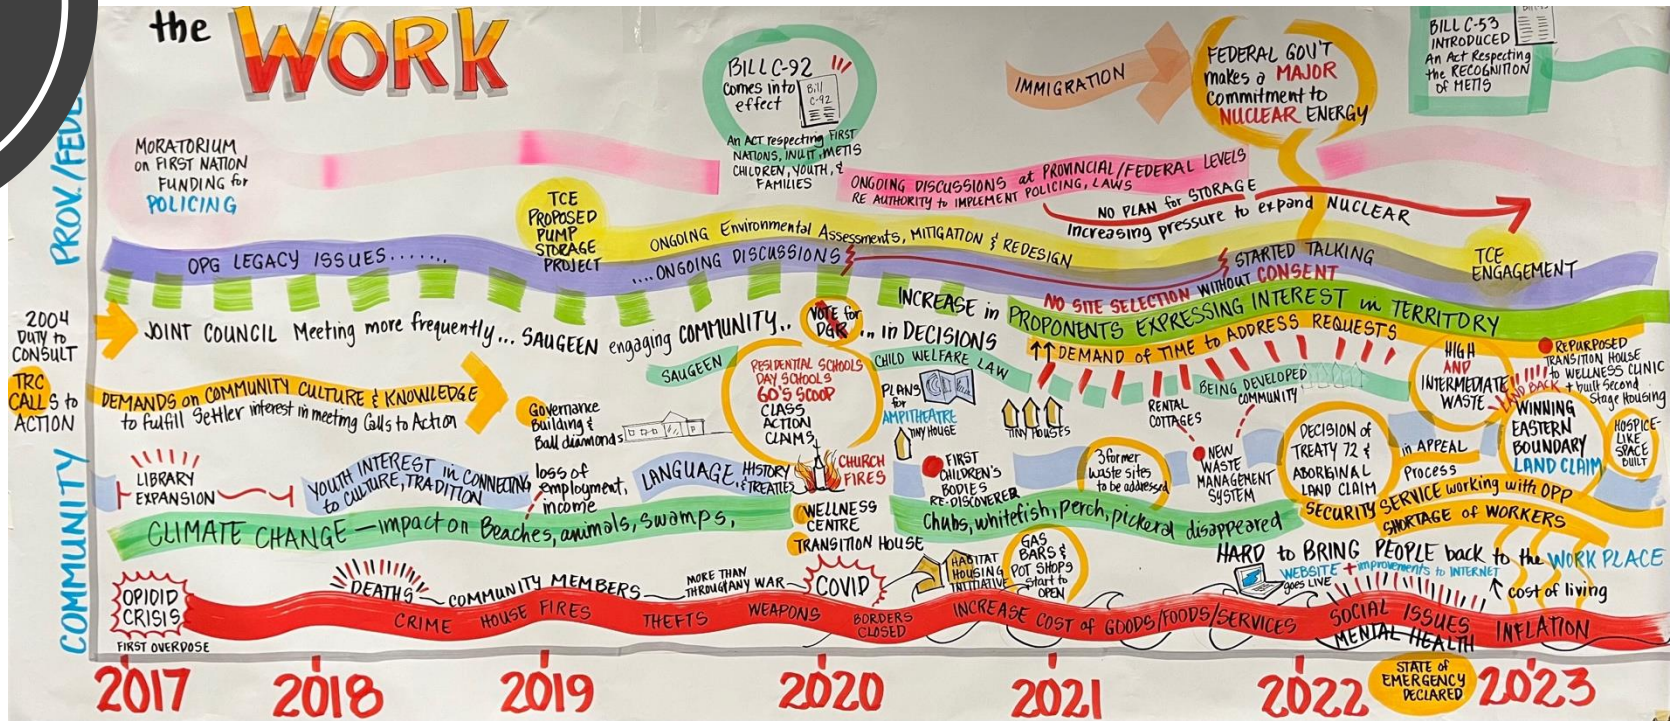 the WORK
PROV./FED
COMMUNITY
BILL C-92
comes into
effect
Bill
C-92
An ACT respecting FIRST
NATIONS, INUIT, METIS
CHILDREN, YOUTH, &
FAMILIES
IMMIGRATION
FEDERAL GOV'T
makes a MAJOR
Commitment to
NUCLEAR ENERGY
BILL C-53
INTRODUCED
An Act Respecting
the RECOGNITION
of METIS
MORATORIUM
on FIRST NATION
FUNDING for
POLICING
ONGOING DISCUSSIONS at PROVINCIAL/FEDERAL LEVELS
RE AUTHORITY to IMPLEMENT POLICING, LAWS
NO PLAN for STORAGE
Increasing pressure to expand NUCLEAR
TCE
PROPOSED
PUMP
STORAGE
PROJECT
ONGOING Environmental Assessments, MITIGATION & REDESIGN
OPG LEGACY ISSUES.......
....ONGOING DISCUSSIONS
STARTED TALKING
WITHOUT CONSENT
NO SITE SELECTION
TCE
ENGAGEMENT
2004
DUTY to
CONSULT
JOINT COUNCIL Meeting more frequently... SAUGEEN engaging COMMUNITY..
VOTE for
DGR
... in DECISIONS
INCREASE in
PROPONENTS EXPRESSING INTEREST in TERRITORY
DEMAND of TIME to ADDRESS REQUESTS
TRC
CALLS to
ACTION
DEMANDS on COMMUNITY CULTURE & KNOWLEDGE
to fulfill Settler interest in meeting Calls to Action
Governance
Building &
Ball diamonds
SAUGEEN
RESIDENTIAL SCHOOLS
DAY SCHOOLS
60'S SCOOP
CLASS
ACTION
CLAIMS
CHILD WELFARE LAW
PLANS
for
AMPITHEATRE
TINY HOUSE
TINY HOUSES
BEING DEVELOPED
COMMUNITY
RENTAL
COTTAGES
HIGH
AND
INTERMEDIATE
WASTE
REPURPOSED
TRANSITION HOUSE
to WELLNESS CLINIC
+ built Second
Stage Housing
LAND BACK
WINNING
EASTERN
BOUNDARY
LAND CLAIM
HOSPICE-
LIKE
SPACE
BUILT
LIBRARY
EXPANSION
YOUTH INTEREST in CONNECTING
to CULTURE, TRADITION
loss of
employment,
income
LANGUAGE, HISTORY
& TREATIES
CHURCH
FIRES
FIRST
CHILDREN'S
BODIES
RE-DISCOVERED
3 former
waste sites
to be addressed
NEW
WASTE
MANAGEMENT
SYSTEM
DECISION of
TREATY 72 &
ABORIGINAL
LAND CLAIM
in APPEAL
Process
SECURITY SERVICE working with OPP
SHORTAGE of WORKERS
CLIMATE CHANGE — impact on Beaches, animals, swamps,
WELLNESS
CENTRE
TRANSITION HOUSE
Chubs, whitefish, perch, pickeral disappeared
HARD to BRING PEOPLE back to the WORK PLACE
WEBSITE + improvements to INTERNET
goes LIVE
cost of living
OPIOID
CRISIS
FIRST OVERDOSE
DEATHS
COMMUNITY MEMBERS
MORE THAN
THROUGH ANY WAR
COVID
HABITAT
HOUSING
INITIATIVE
GAS
BARS &
POT SHOPS
Start to
OPEN
CRIME HOUSE FIRES THEFTS WEAPONS
BORDERS
CLOSED
INCREASE COST of GOODS/FOODS/SERVICES
SOCIAL ISSUES
MENTAL HEALTH
INFLATION
2017 2018 2019 2020 2021 2022
STATE of
EMERGENCY
DECLARED
2023